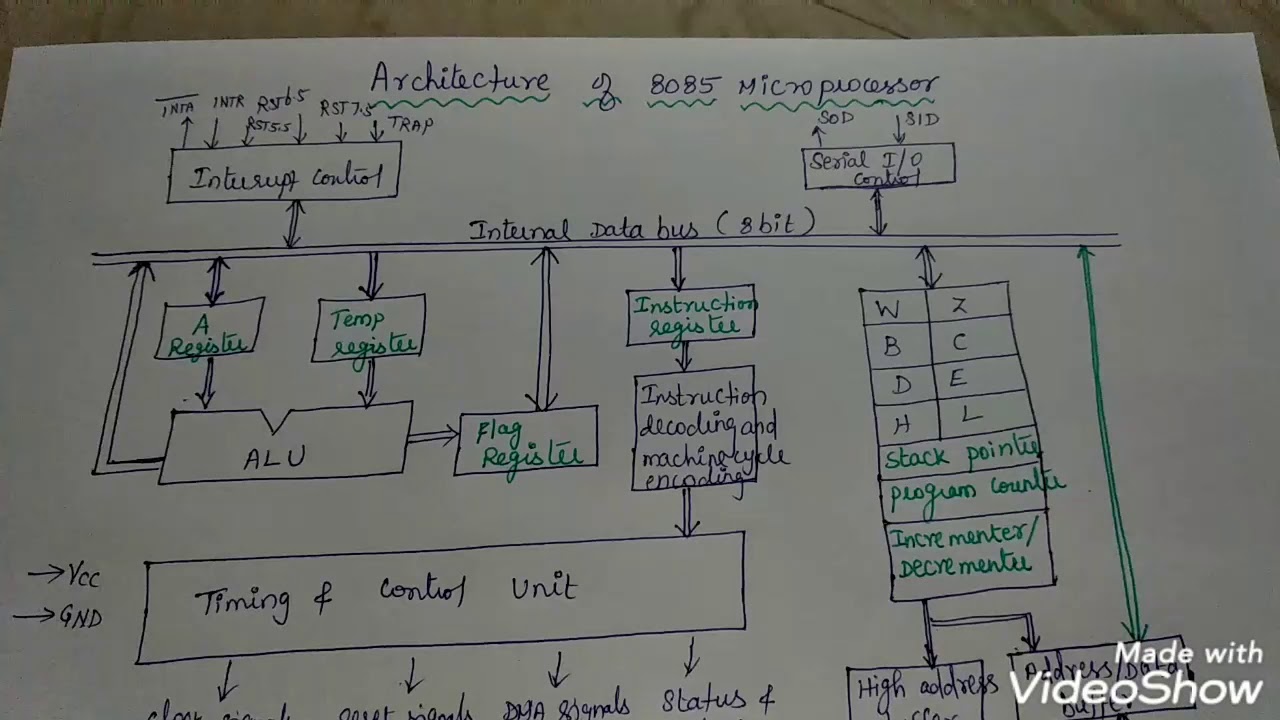 Architecture of 8085 Microprocessor
INTA INTR RST6.5 RST7.5
RST5.5 TRAP
SOD SID
Interupt control
Serial I/O
control
Internal Data bus (8bit)
A
Register
Temp
register
Instruction
register
W Z
B C
D E
H L
Instruction
decoding and
machine cycle
encoding
ALU
Flag
Register
stack pointer
program counter
Incrementer/
Decrementer
Vcc
GND
Timing & control Unit
DMA signals
Status &
High address
Address/Data
Made with
VideoShow